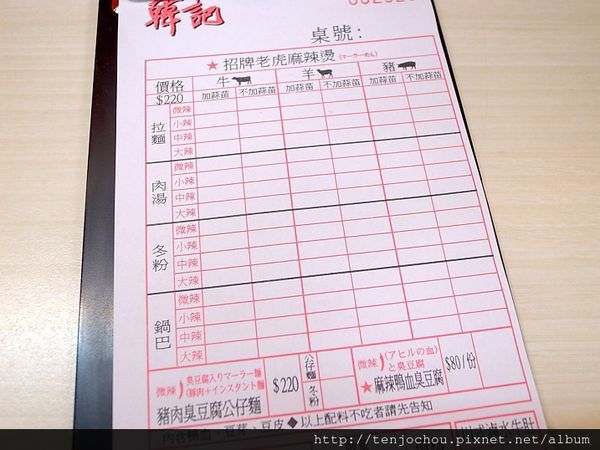 韓記
桌號：
★招牌老虎麻辣燙(マーラーめん)
價格 $220 牛 羊 豬
加蒜苗 不加蒜苗 加蒜苗 不加蒜苗 加蒜苗 不加蒜苗
拉麵 微辣 小辣 中辣 大辣
肉湯 微辣 小辣 中辣 大辣
冬粉 微辣 小辣 中辣 大辣
鍋巴 微辣 小辣 中辣 大辣
微辣 臭豆腐入りマーラー麵
(豚肉+インスタント麵)
豬肉臭豆腐公仔麵 $220 公仔麵 冬粉
微辣 (アヒルの血)
と臭豆腐
★麻辣鴨血臭豆腐 $80/份
內含鴨血、豆芽、豆皮◆以上配料不吃者請先告知
http://tenjochou.pixnet.net/album